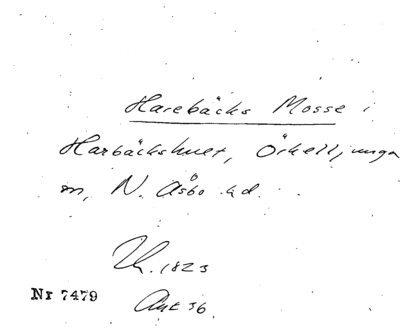 Harebäcks Mosse i
Harbäckshult, Örkelljunga
sn, N. Åsbo hd.
Th. 1823
Ant 36.
Nr 7479